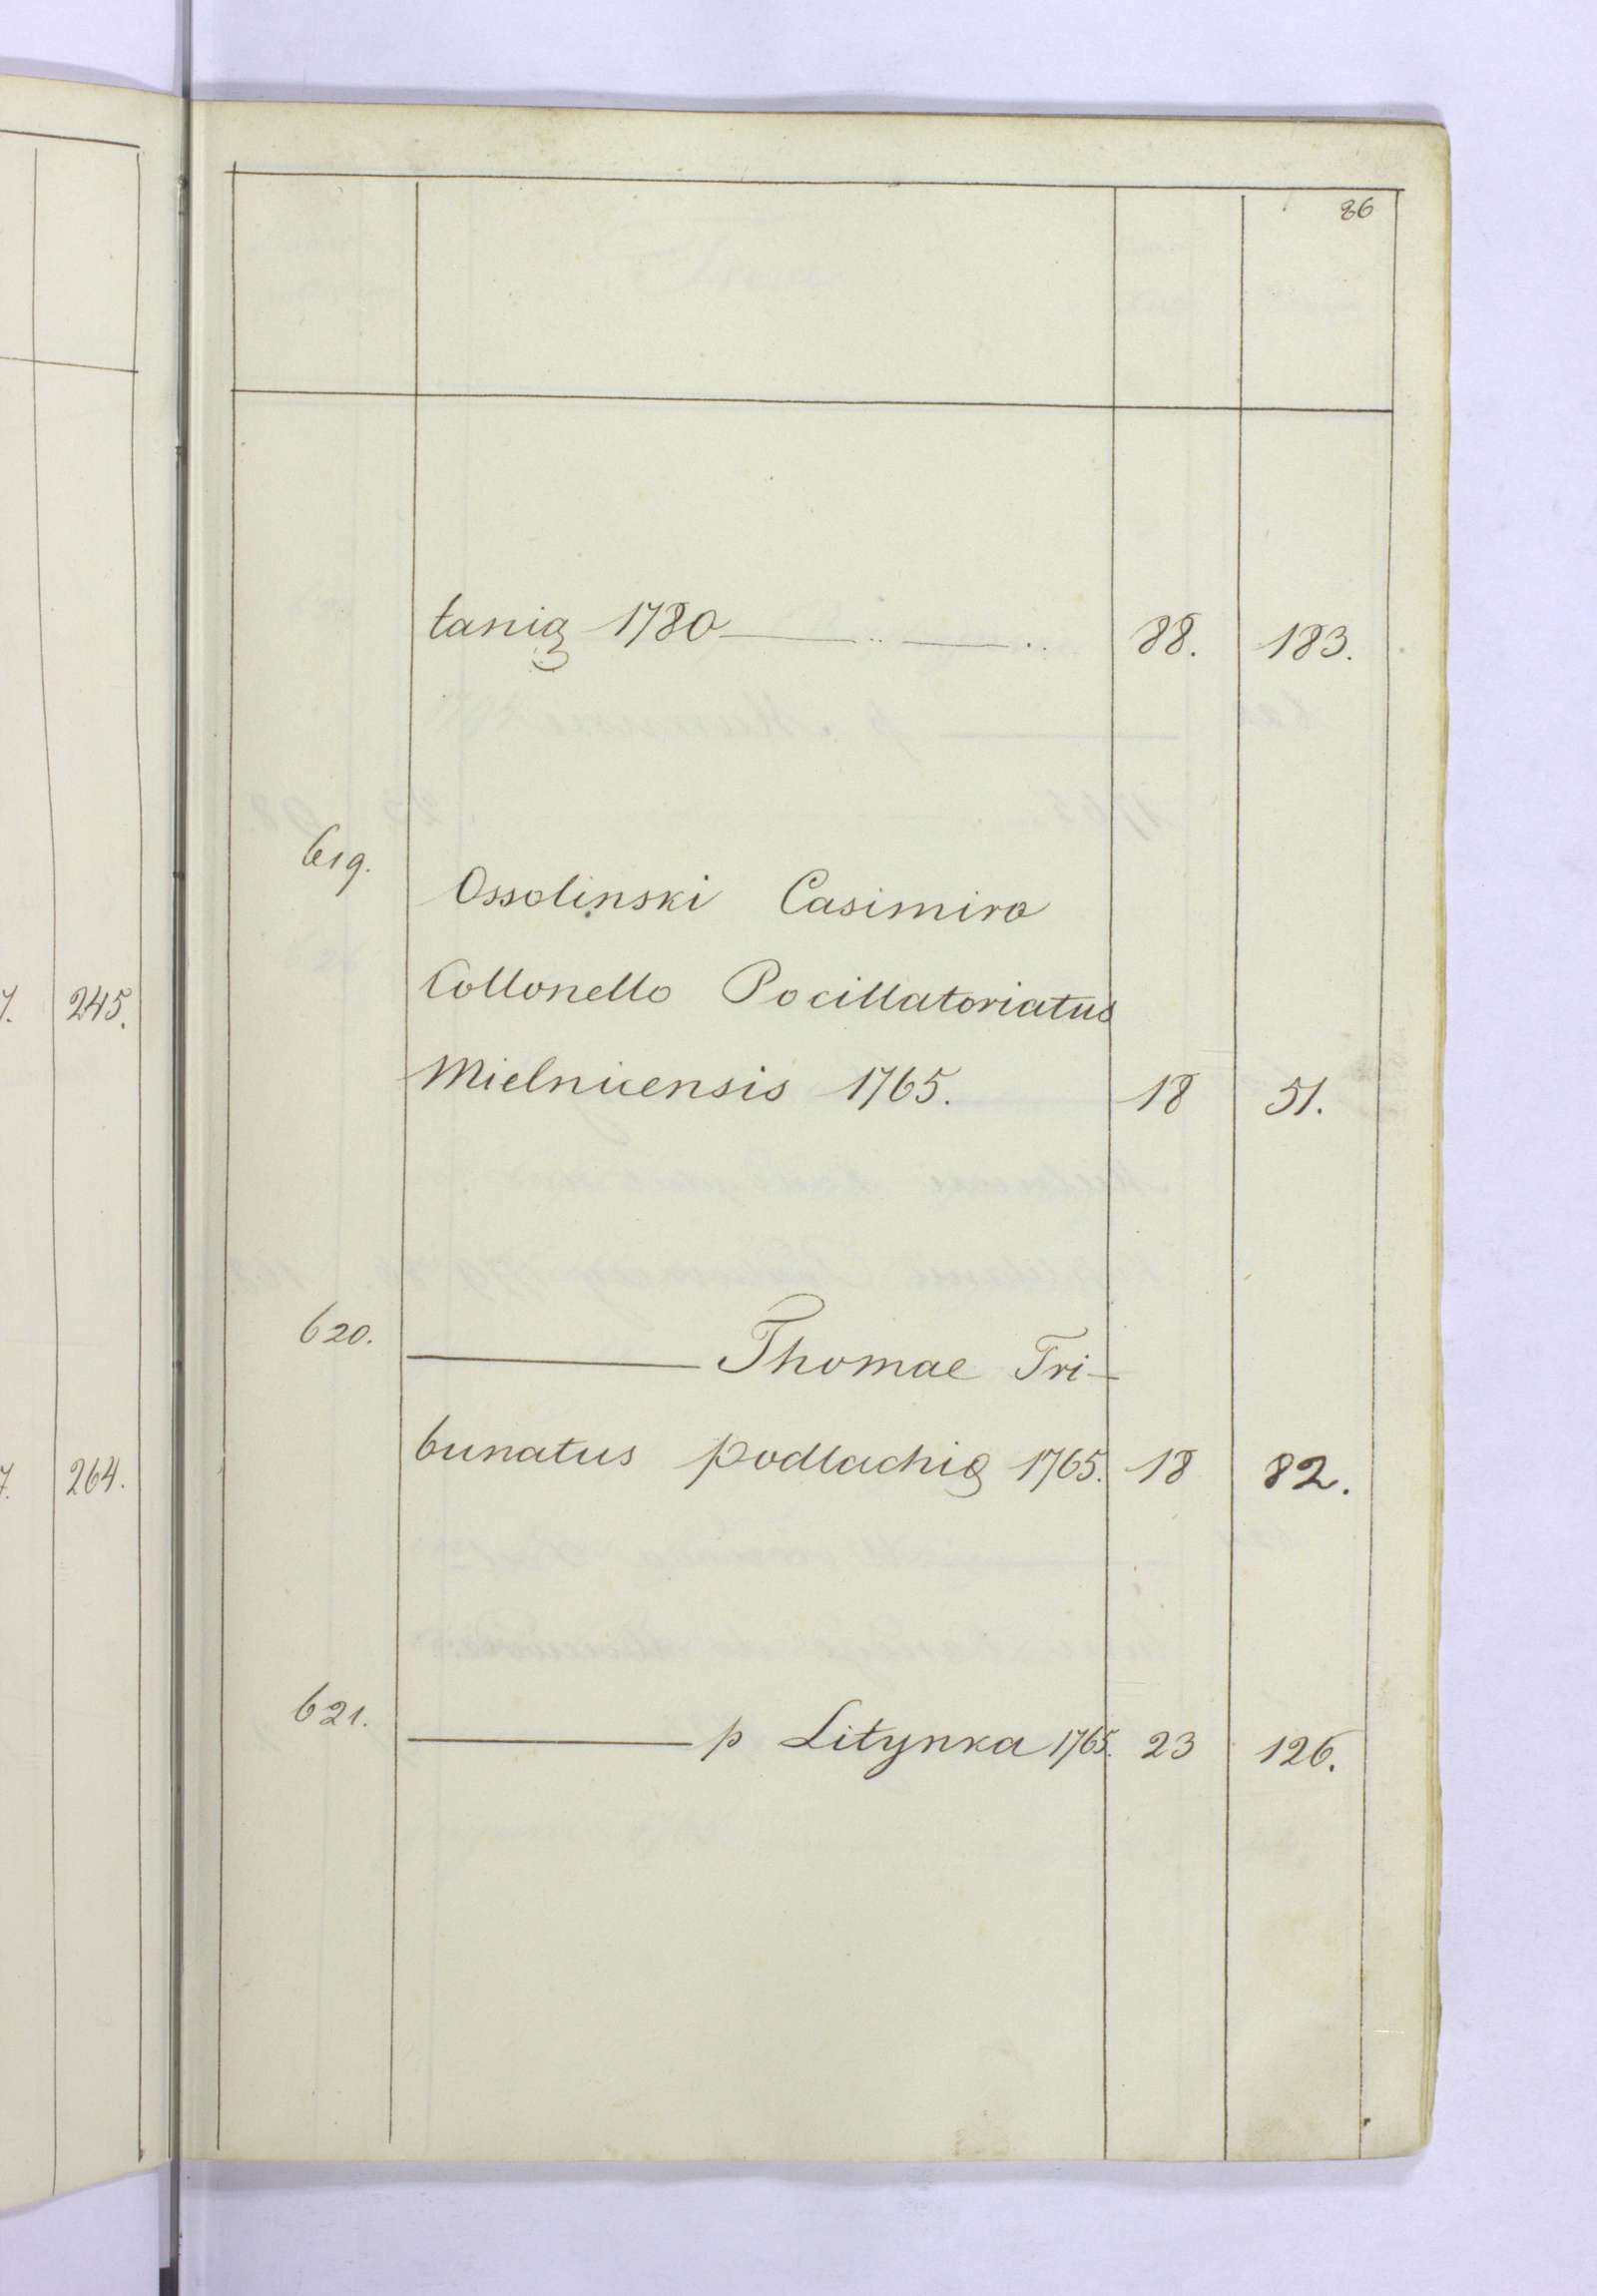 86
tanię 1780 —— .. —— .. 88. 183.
619.
Ossolinski Casimiro
Collonello Pocillatoriatus
Mielnicensis 1765. 18 51.
620.
—— Thomae Tri-
bunatus podlachię 1765. 18 82.
621.
—— p Litynka 1765. 23 126.
7. 245.
7. 264.